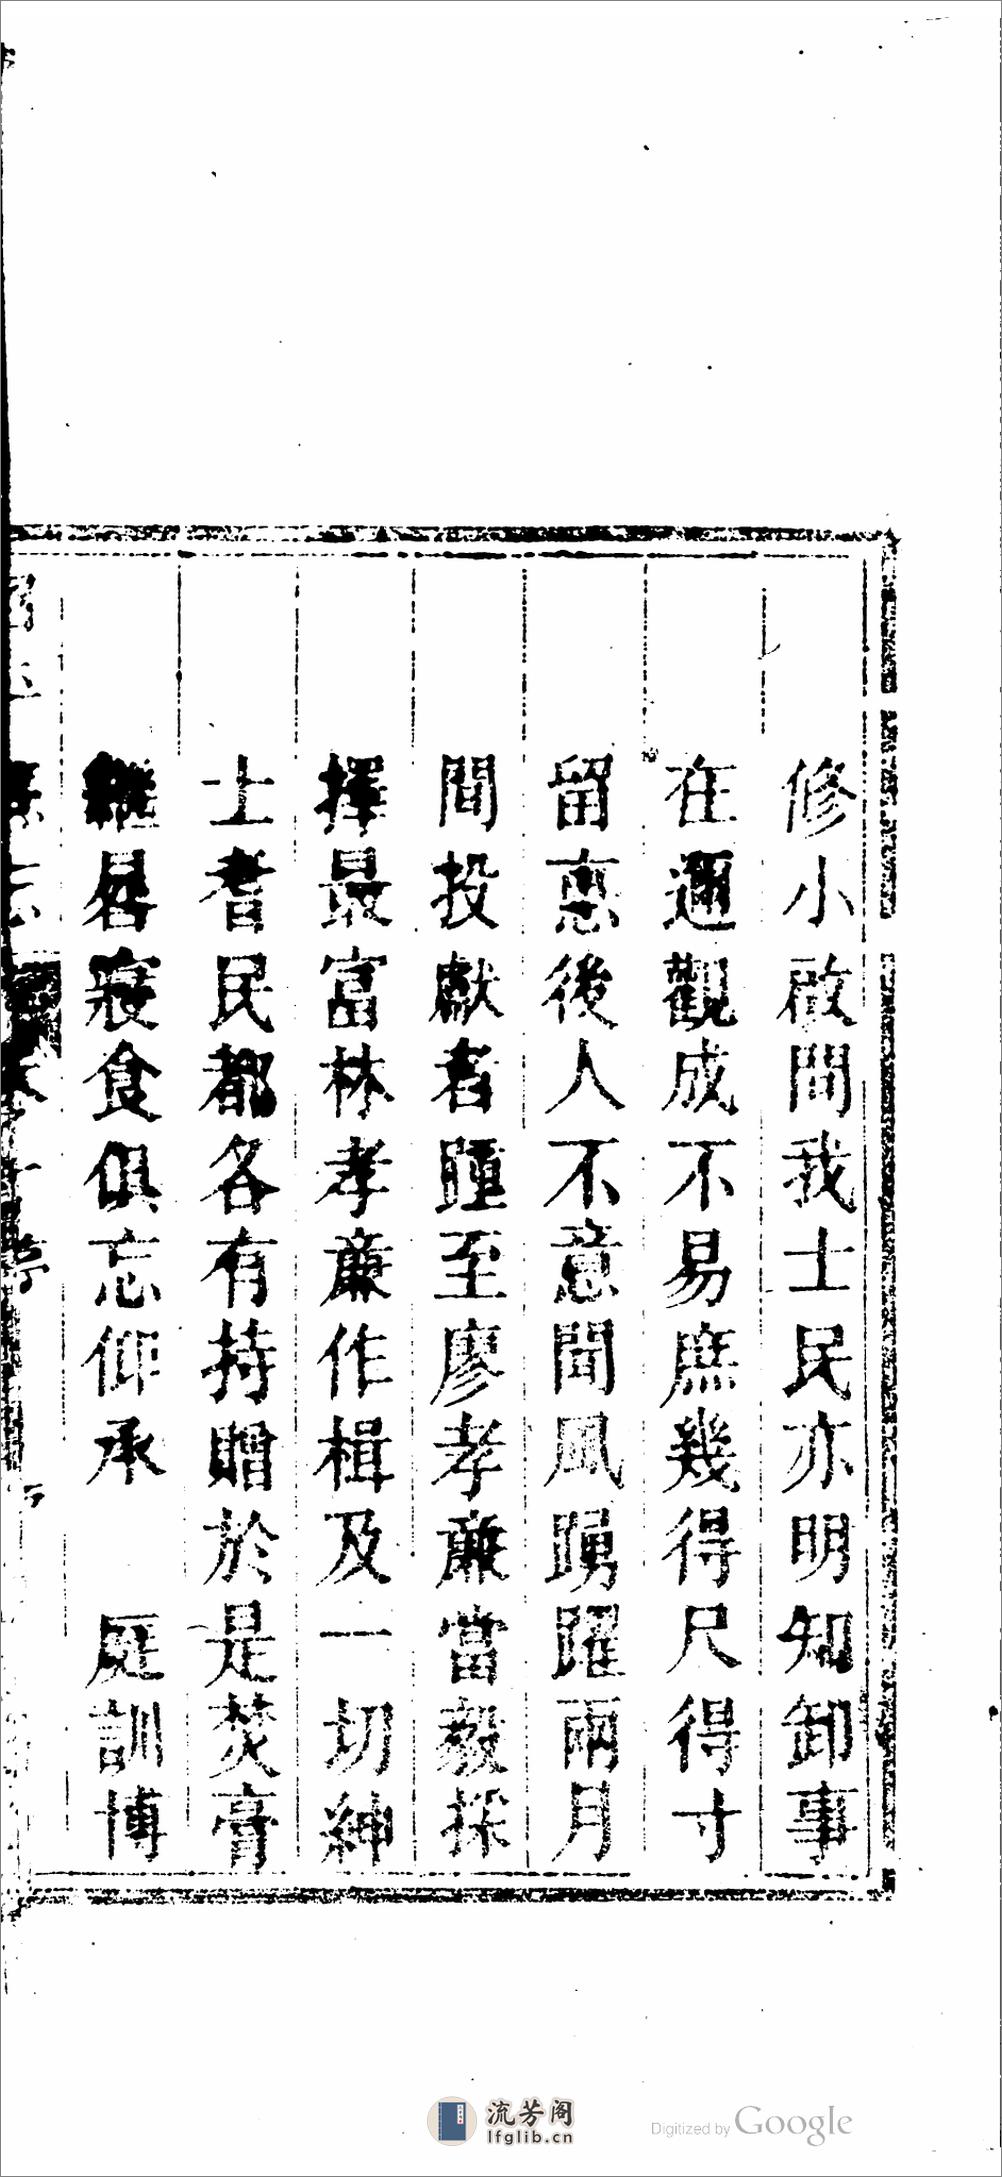 修小啟問我士民亦明知卸事
在邇觀成不易庶幾得尺得寸
留惠後人不意聞風踴躍兩月
間投獻者踵至廖孝亷當毅採
擇最富林孝亷作楫及一切紳
士耆民都各有持贈於是焚膏
繼晷寢食俱忘仰承　庭訓博
流芳阁
lfglib.cn
Digitized by Google